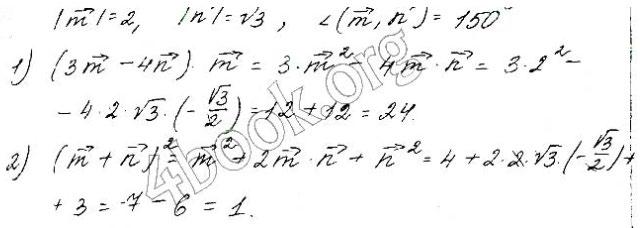 |m⃗|=2, |n⃗|=√3, ∠(m⃗, n⃗)=150°
1) (3m⃗ - 4n⃗)·m⃗ = 3·m⃗² - 4m⃗·n⃗ = 3·2² -
- 4·2·√3·(-√3/2) = 12 + 12 = 24.
2) (m⃗ + n⃗)² = m⃗² + 2m⃗·n⃗ + n⃗² = 4 + 2·2·√3·(-√3/2) +
+ 3 = 7 - 6 = 1.
4book.org